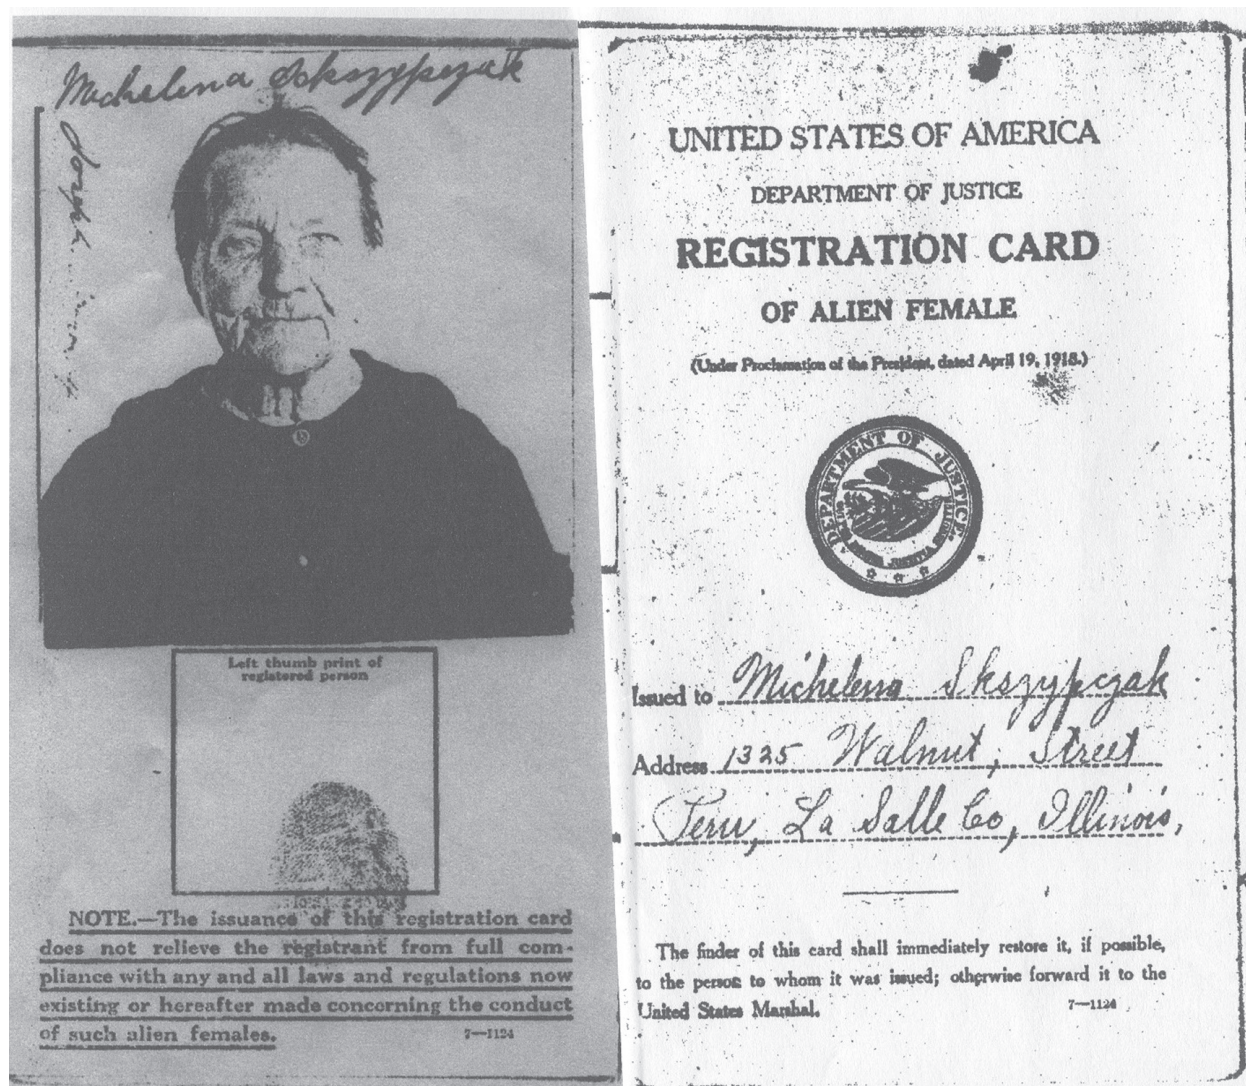 Michelena Skszypczak
Joseph
Left thumb print of
registered person
NOTE.—The issuance of this registration card
does not relieve the registrant from full com-
pliance with any and all laws and regulations now
existing or hereafter made concerning the conduct
of such alien females.
7—1124
UNITED STATES OF AMERICA
DEPARTMENT OF JUSTICE
REGISTRATION CARD
OF ALIEN FEMALE
(Under Proclamation of the President, dated April 19, 1918.)
DEPARTMENT OF JUSTICE
Issued to Michelena Skszypczak
Address 1325 Walnut, Street
Peru, La Salle Co, Illinois,
The finder of this card shall immediately restore it, if possible,
to the person to whom it was issued; otherwise forward it to the
United States Marshal.
7—1124